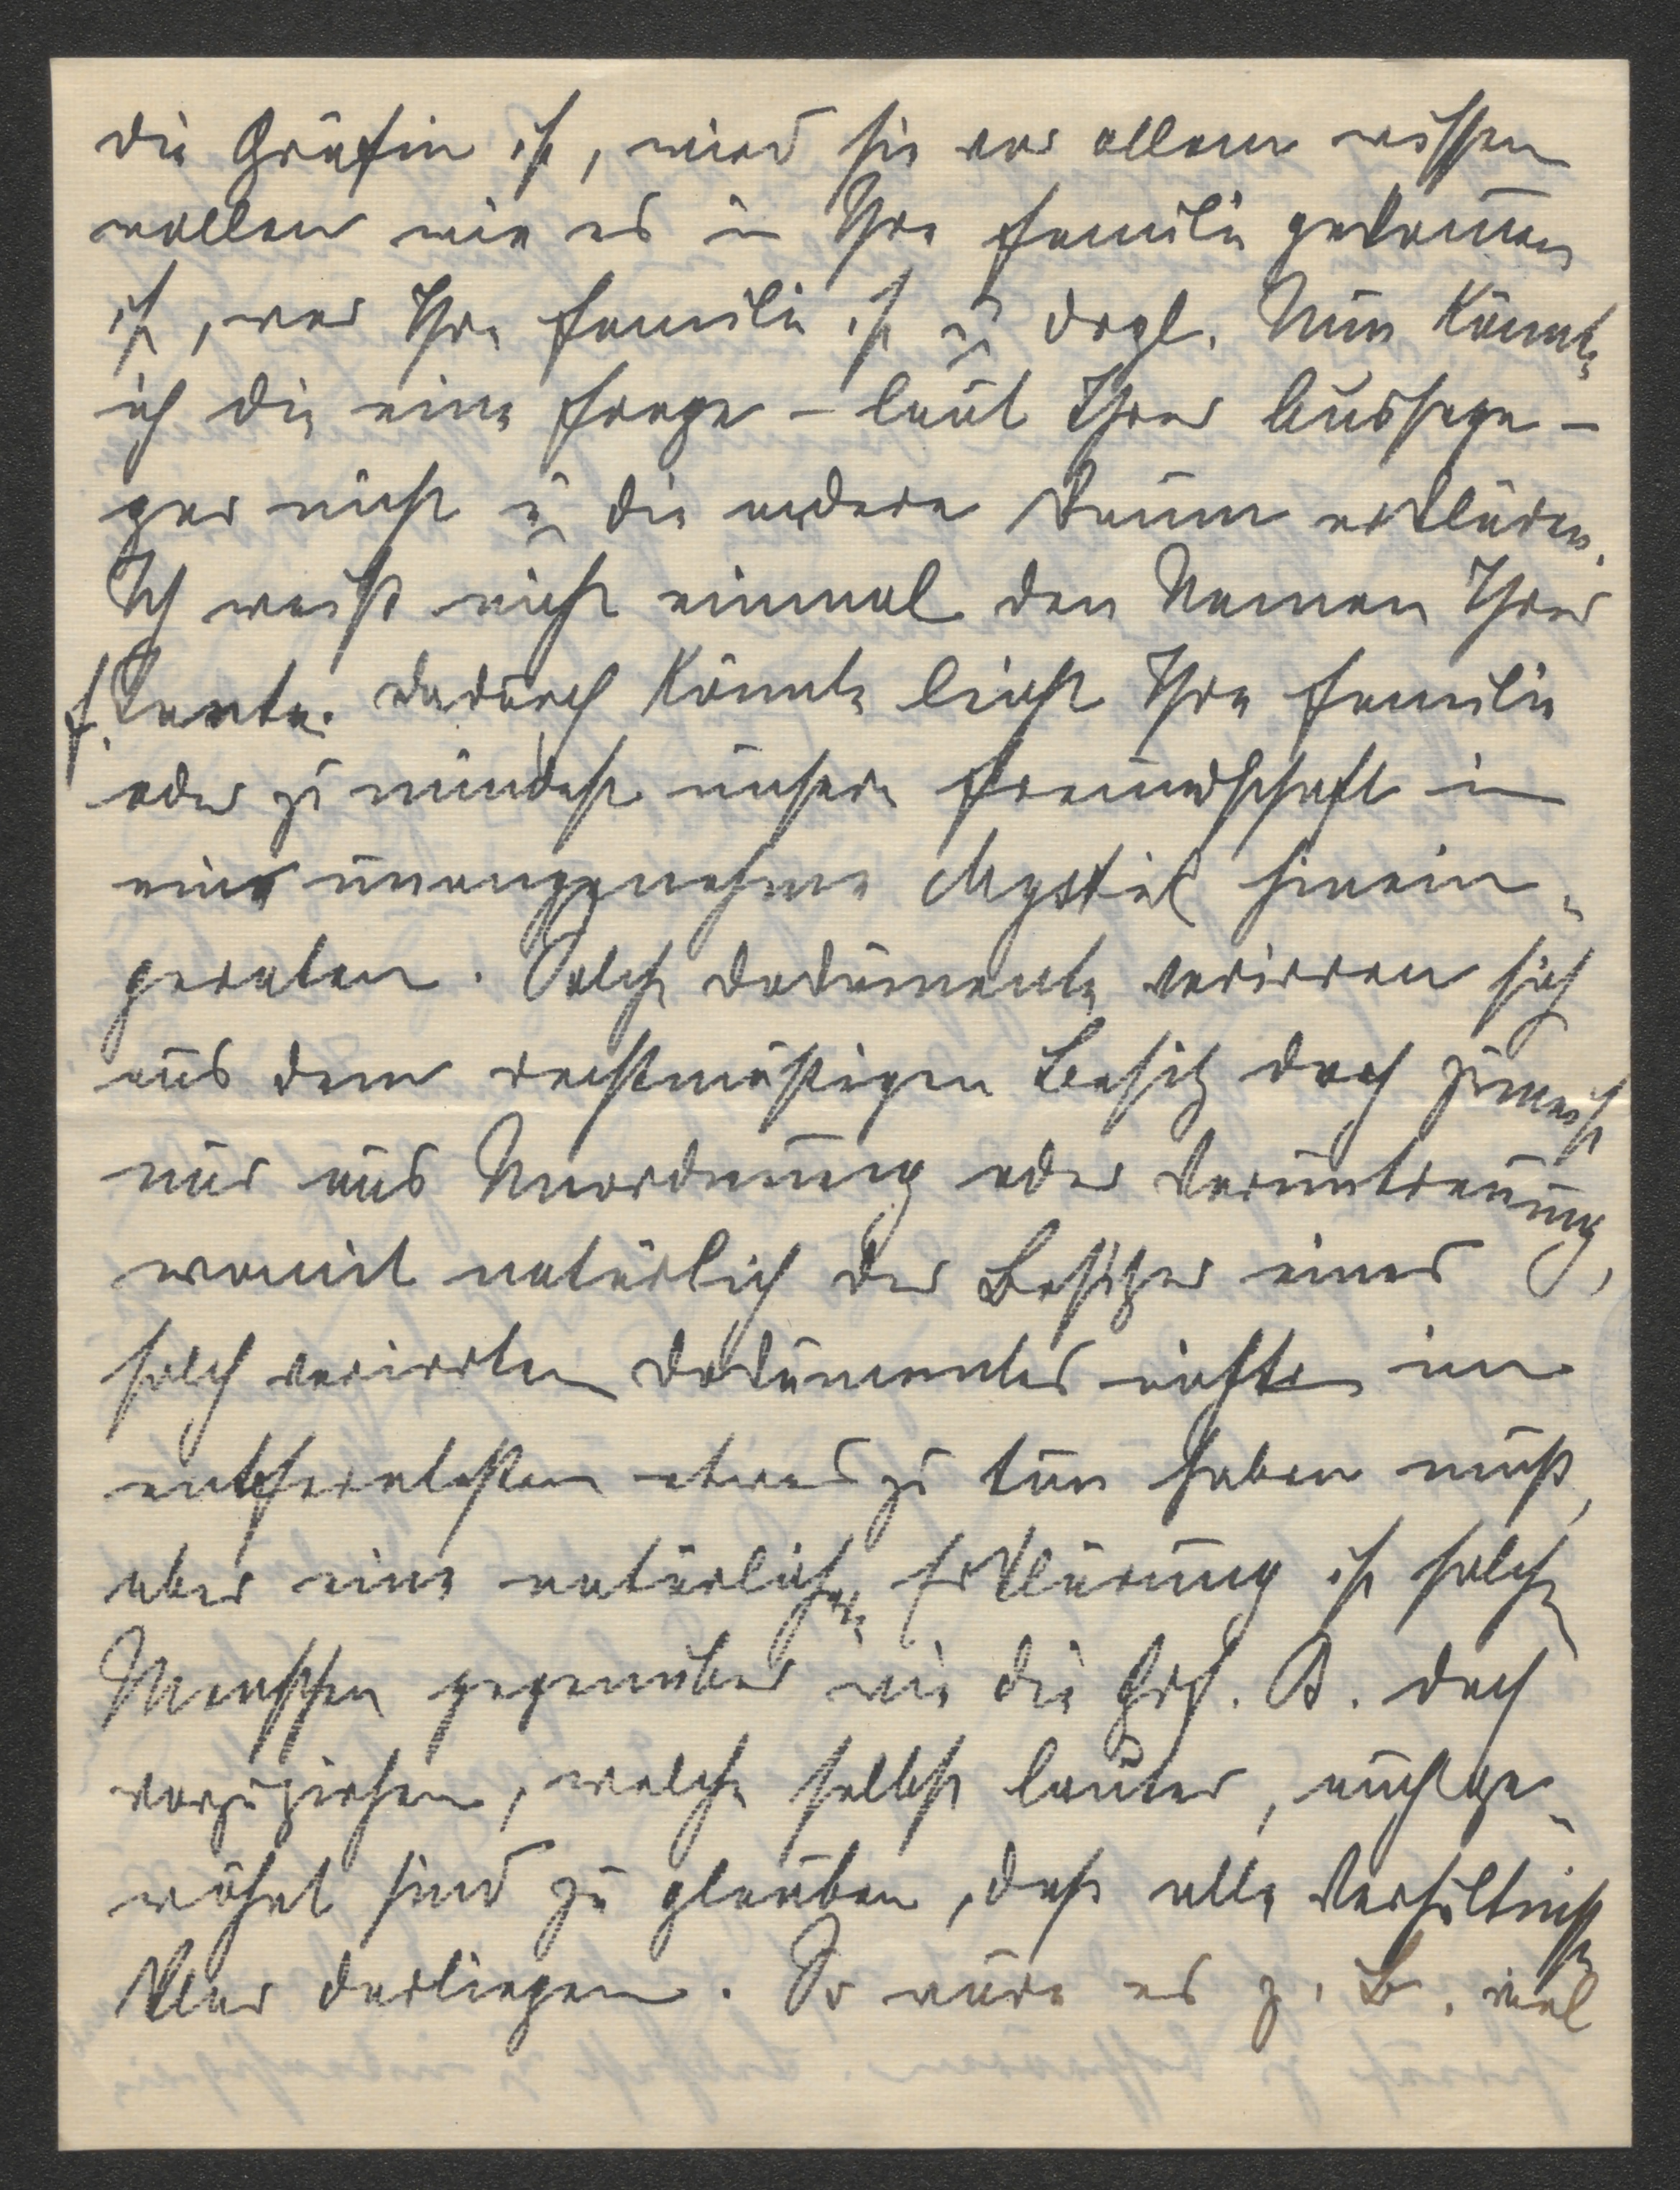 die Gräfin ist, wird sie vor allem wissen
wollen wie es in Ihre Familie gekom̄en
ist, wer Ihre Familie ist u. drgl. Nun könnte
ich die eine Frage – laut Ihrer Aussage –
gar nicht u. die andere kaum erklären.
Ich weiß nicht einmal den Namen Ihrer
f. Tante. Dadurch könnte leicht Ihre Familie
oder zu mindest unsere Freundschaft in
eine unangenehme Mystik hinein-
geraten. Solche Dokumente verirren sich
aus dem rechtmäßigen Besitz doch zumeist
nur aus Unordnung oder Veruntreuung,
womit natürlich der Besitzer eines
solch verirrten Dokumentes nichts im
entferntesten etwas zu tun haben muß,
aber eine natürliche Erklärung ist solchen
Menschen gegenüber wie die Grf. B. doch
vorzuziehen, welche selbst lauter, auch ge-
wöhnt sind zu glauben, daß alle Verhältnisse
klar darliegen. So wäre es z. B. viel